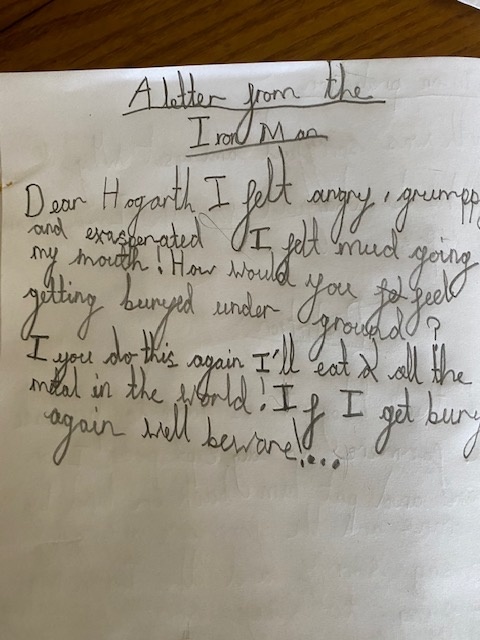 A letter from the
Iron Man
Dear Hogarth I felt angry, grumpp
and exasperated I felt mud going
my mouth! How would you fe feel
getting buryed under ground?
I you do this again I'll eat all the
metal in the world! If I get bury
again well beware!....